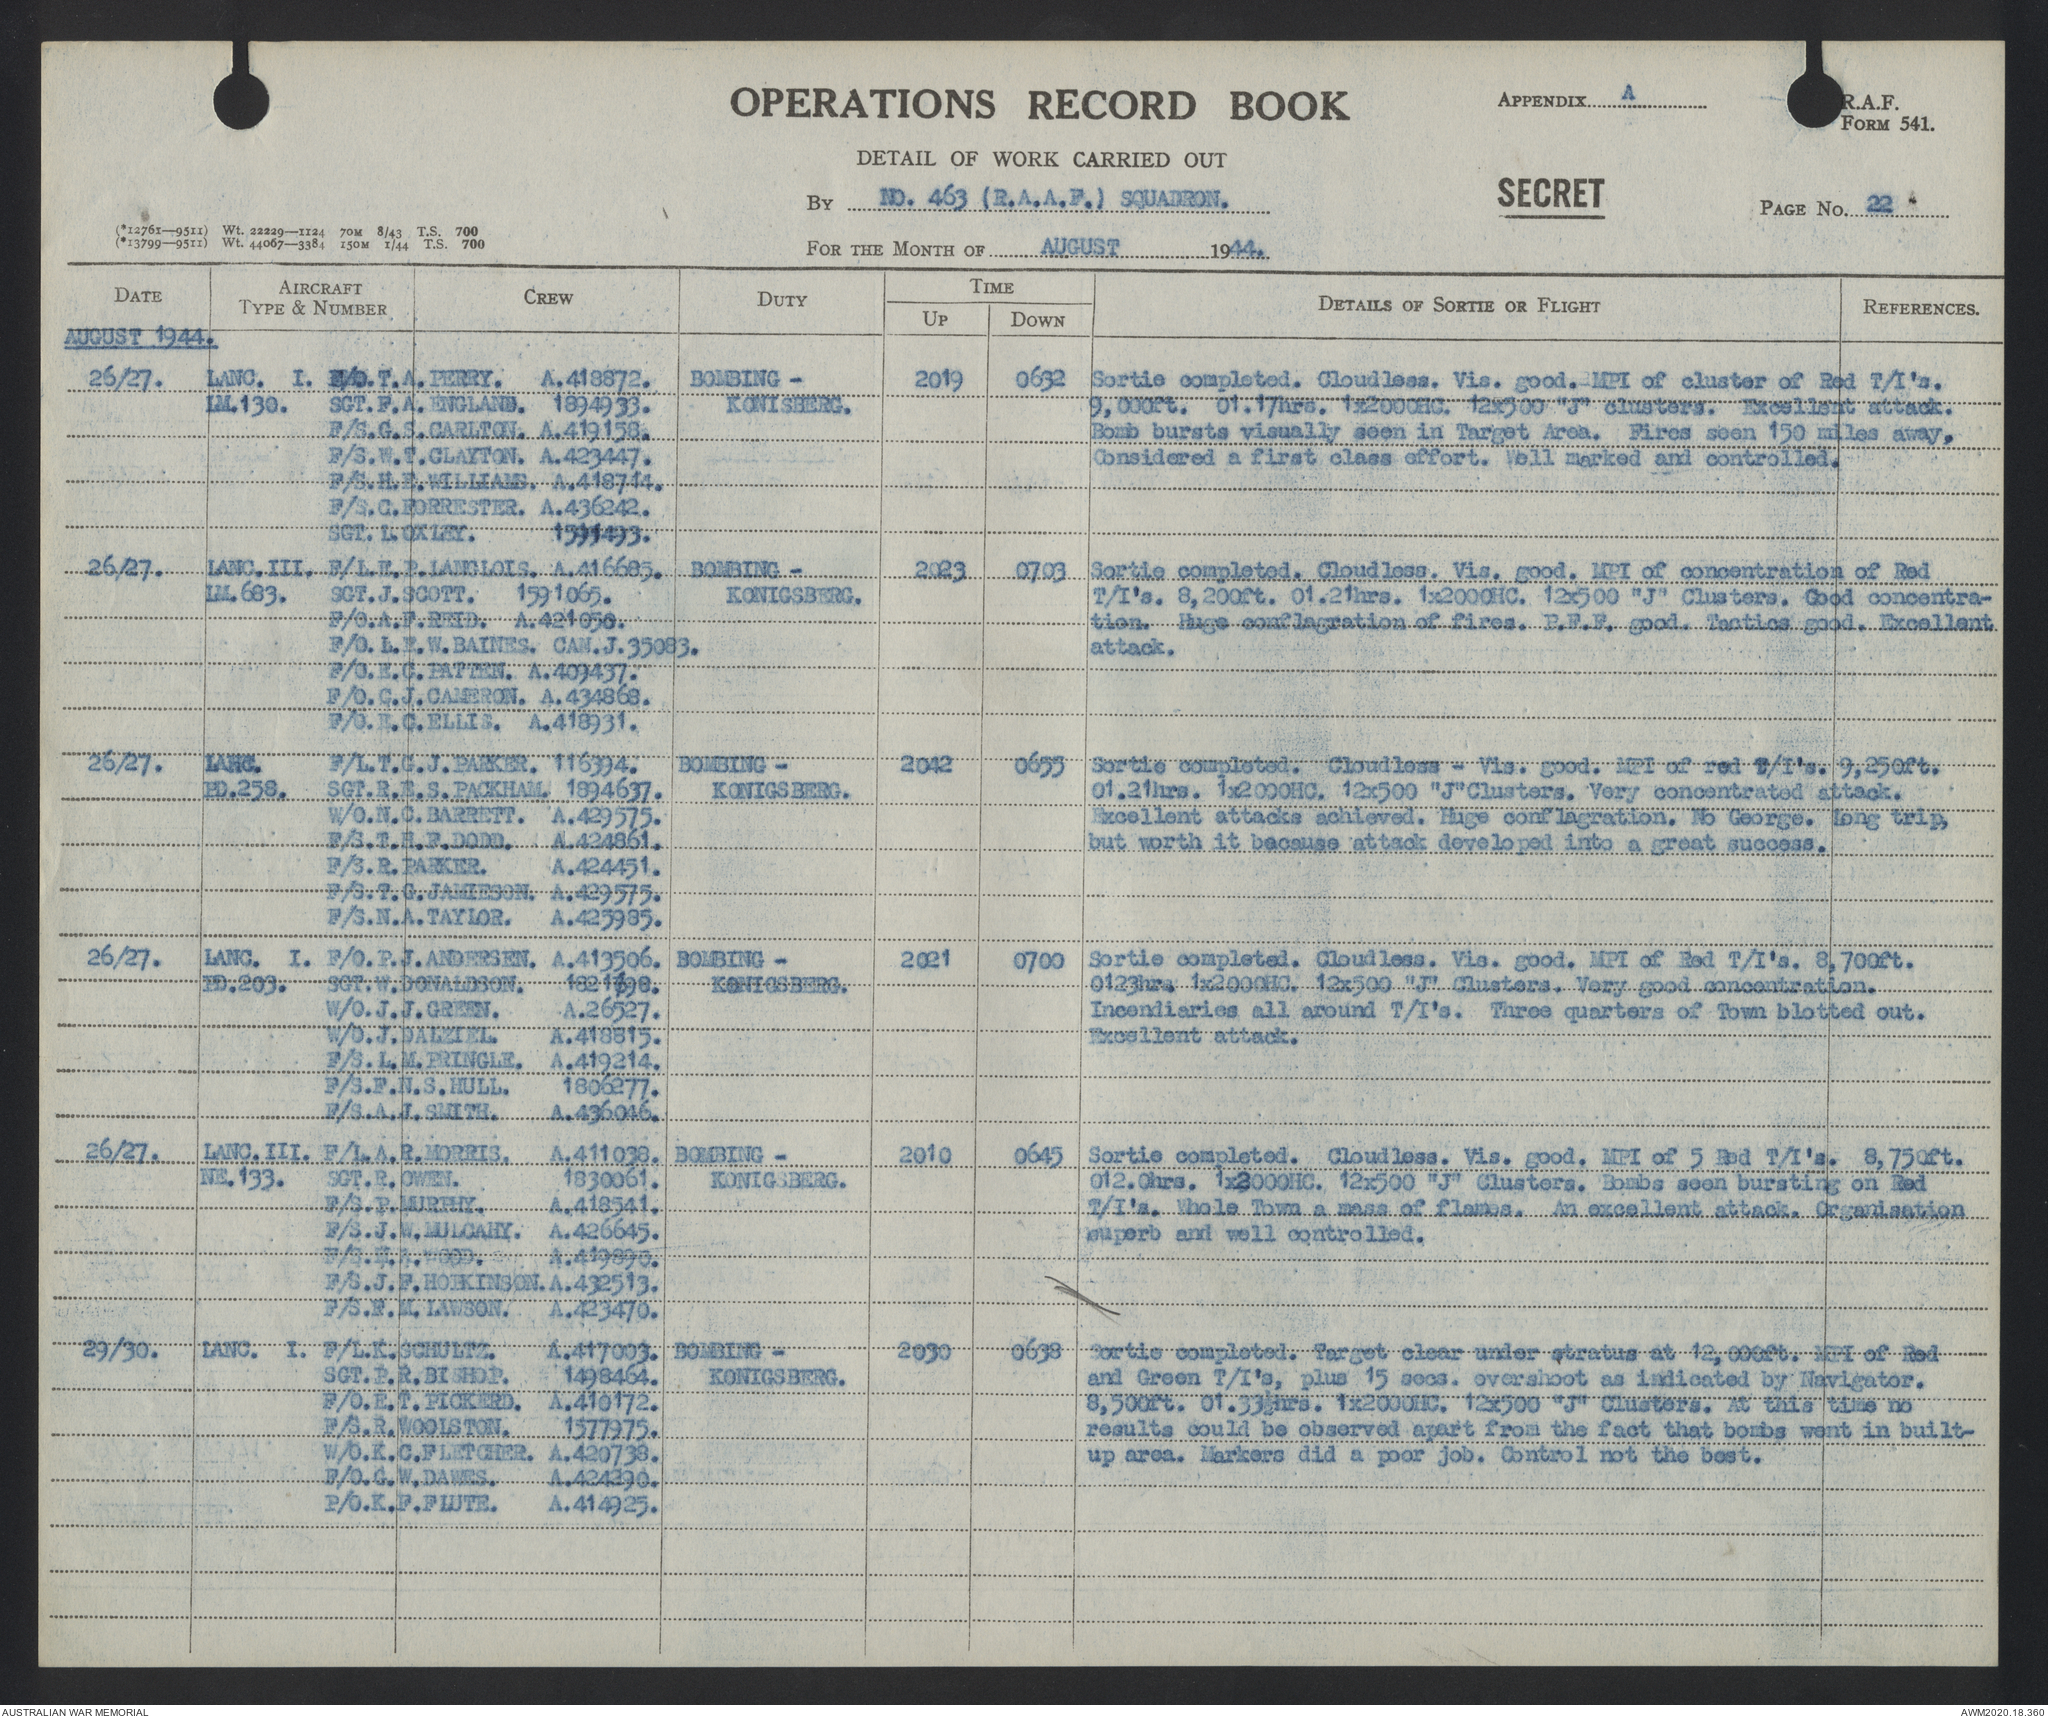 OPERATIONS RECORD BOOK
APPENDIX A
R.A.F.
FORM 541.
DETAIL OF WORK CARRIED OUT
By NO. 463 (R.A.A.F.) SQUADRON.
SECRET
PAGE No. 22
(*12761—9511) Wt. 22229—1124 70M 8/43 T.S. 700
(*13799—9511) Wt. 44067—3384 150M 1/44 T.S. 700
FOR THE MONTH OF AUGUST 1944.
DATE AIRCRAFT TYPE & NUMBER CREW DUTY TIME UP DOWN DETAILS OF SORTIE OR FLIGHT REFERENCES.
AUGUST 1944.
26/27. LANC. I. F/O.T.A.PERRY. A.418872. BOMBING - 2019 0632 Sortie completed. Cloudless. Vis. good. MPI of cluster of Red T/I's.
LM.130. SGT.F.A.ENGLAND. 1894933. KONISBERG. 9,000ft. 01.17hrs. 1x2000HC. 12x500 "J" clusters. Excellent attack.
F/S.G.S.CARLTON. A.419158. Bomb bursts visually seen in Target Area. Fires seen 150 miles away.
F/S.W.T.CLAYTON. A.423447. Considered a first class effort. Well marked and controlled.
F/S.H.E.WILLIAMS. A.418714.
F/S.C.FORRESTER. A.436242.
SGT.L.OXLEY. 1591493.
26/27. LANC.III. F/L.E.P.LANGLOIS. A.416685. BOMBING - 2023 0703 Sortie completed. Cloudless. Vis. good. MPI of concentration of Red
LM.683. SGT.J.SCOTT. 1591065. KONIGSBERG. T/I's. 8,200ft. 01.21hrs. 1x2000HC. 12x500 "J" Clusters. Good concentra-
F/O.A.F.REID. A.421050. tion. Huge conflagration of fires. P.F.F. good. Tactics good. Excellent
F/O.L.E.W.BAINES. CAN.J.35083. attack.
F/O.E.C.PATTEN. A.409437.
F/O.C.J.CAMERON. A.434868.
F/O.E.C.ELLIS. A.418931.
26/27. LANC. F/L.T.C.J.PARKER. 116394. BOMBING - 2042 0655 Sortie completed. Cloudless - Vis. good. MPI of red T/I's. 9,250ft.
PD.258. SGT.R.E.S.PACKHAM. 1894637. KONIGSBERG. 01.21hrs. 1x2000HC. 12x500 "J"Clusters. Very concentrated attack.
W/O.N.C.BARRETT. A.429575. Excellent attacks achieved. Huge conflagration. No George. Long trip,
F/S.T.H.F.DODD. A.424861. but worth it because attack developed into a great success.
F/S.R.PARKER. A.424451.
F/S.T.G.JAMIESON. A.429575.
F/S.N.A.TAYLOR. A.425985.
26/27. LANC. I. F/O.P.J.ANDERSEN. A.413506. BOMBING - 2021 0700 Sortie completed. Cloudless. Vis. good. MPI of Red T/I's. 8,700ft.
PD.203. SGT.W.DONALDSON. KONIGSBERG. 0123hrs. 1x2000HC. 12x500 "J" Clusters. Very good concentration.
W/O.J.J.GREEN. A.26527. Incendiaries all around T/I's. Three quarters of Town blotted out.
W/O.J.DALZIEL. A.418815. Excellent attack.
F/S.L.M.PRINGLE. A.419214.
F/S.F.N.S.HULL. 1806277.
F/S.A.J.SMITH. A.436046.
26/27. LANC.III. F/L.A.R.MORRIS. A.411038. BOMBING - 2010 0645 Sortie completed. Cloudless. Vis. good. MPI of 5 Red T/I's. 8,750ft.
NE.133. SGT.R.OWEN. 1830061. KONIGSBERG. 012.0hrs. 1x2000HC. 12x500 "J" Clusters. Bombs seen bursting on Red
F/S.P.MURPHY. A.418541. T/I's. Whole Town a mass of flames. An excellent attack. Organisation
F/S.J.W.MULCAHY. A.426645. superb and well controlled.
WOOD. A.419890.
F/S.J.F.HOPKINSON. A.432513.
F/S.F.M.LAWSON. A.423470.
29/30. LANC. I. F/L.K.SCHULTZ. A.417003. BOMBING - 2030 0638 Sortie completed. Target clear under stratus at 12,000ft. MPI of Red
SGT.P.R.BISHOP. 1498464. KONIGSBERG. and Green T/I's, plus 15 secs. overshoot as indicated by Navigator.
F/O.E.T.PICKERD. A.410172. 8,500ft. 01.33½hrs. 1x2000HC. 12x500 "J" Clusters. At this time no
F/S.R.WOOLSTON. 1577975. results could be observed apart from the fact that bombs went in built-
W/O.K.C.FLETCHER. A.420738. up area. Markers did a poor job. Control not the best.
F/O.G.W.DAWES. A.424290.
P/O.K.F.FLUTE. A.414925.
AUSTRALIAN WAR MEMORIAL
AWM2020.18.360